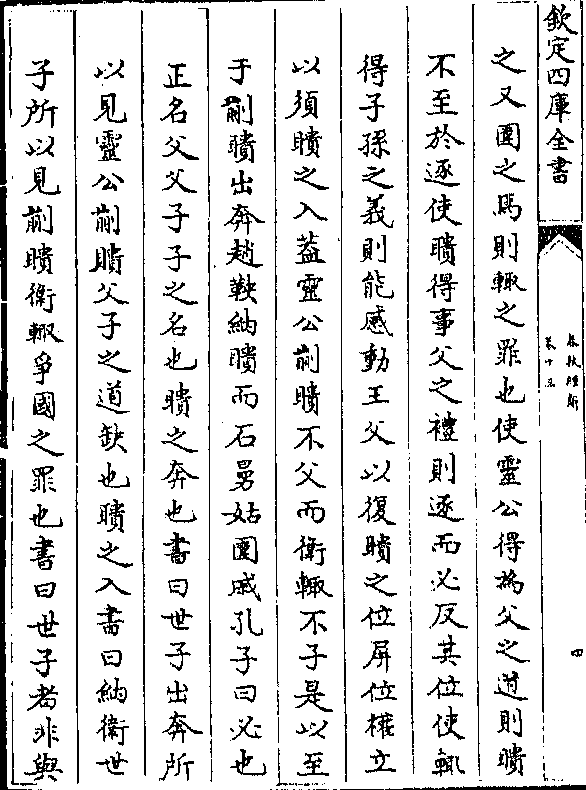 欽定四庫全書
春秋經解
卷十五
四
之又圍之焉則輒之罪也使靈公得為父之道則聵
不至於逐使聵得事父之禮則逐而必反其位使輒
得子孫之義則能感動王父以復聵之位屏位權立
以須聵之入葢靈公蒯聵不父而衛輒不子是以至
于蒯聵出奔趙鞅納聵而石曼姑圍戚孔子曰必也
正名父父子子之名也聵之奔也書曰世子出奔所
以見靈公蒯聵父子之道缺也聵之入書曰納衛世
子所以見蒯聵衛輒爭國之罪也書曰世子者非與